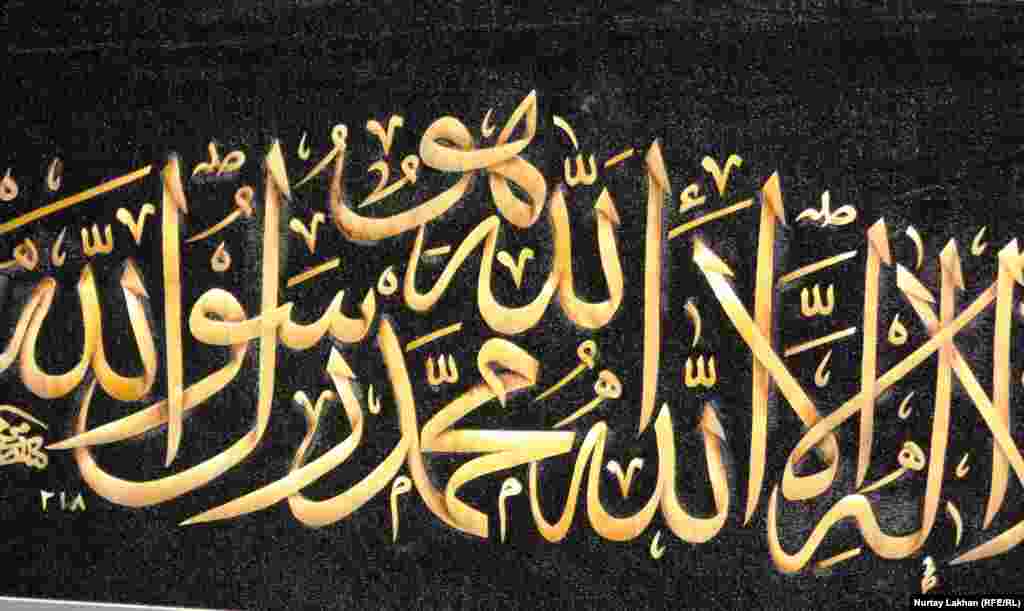 الله هو
لا إله إلا الله محمد رسول الله
٢١٨
Nurtay Lakhan (RFE/RL)